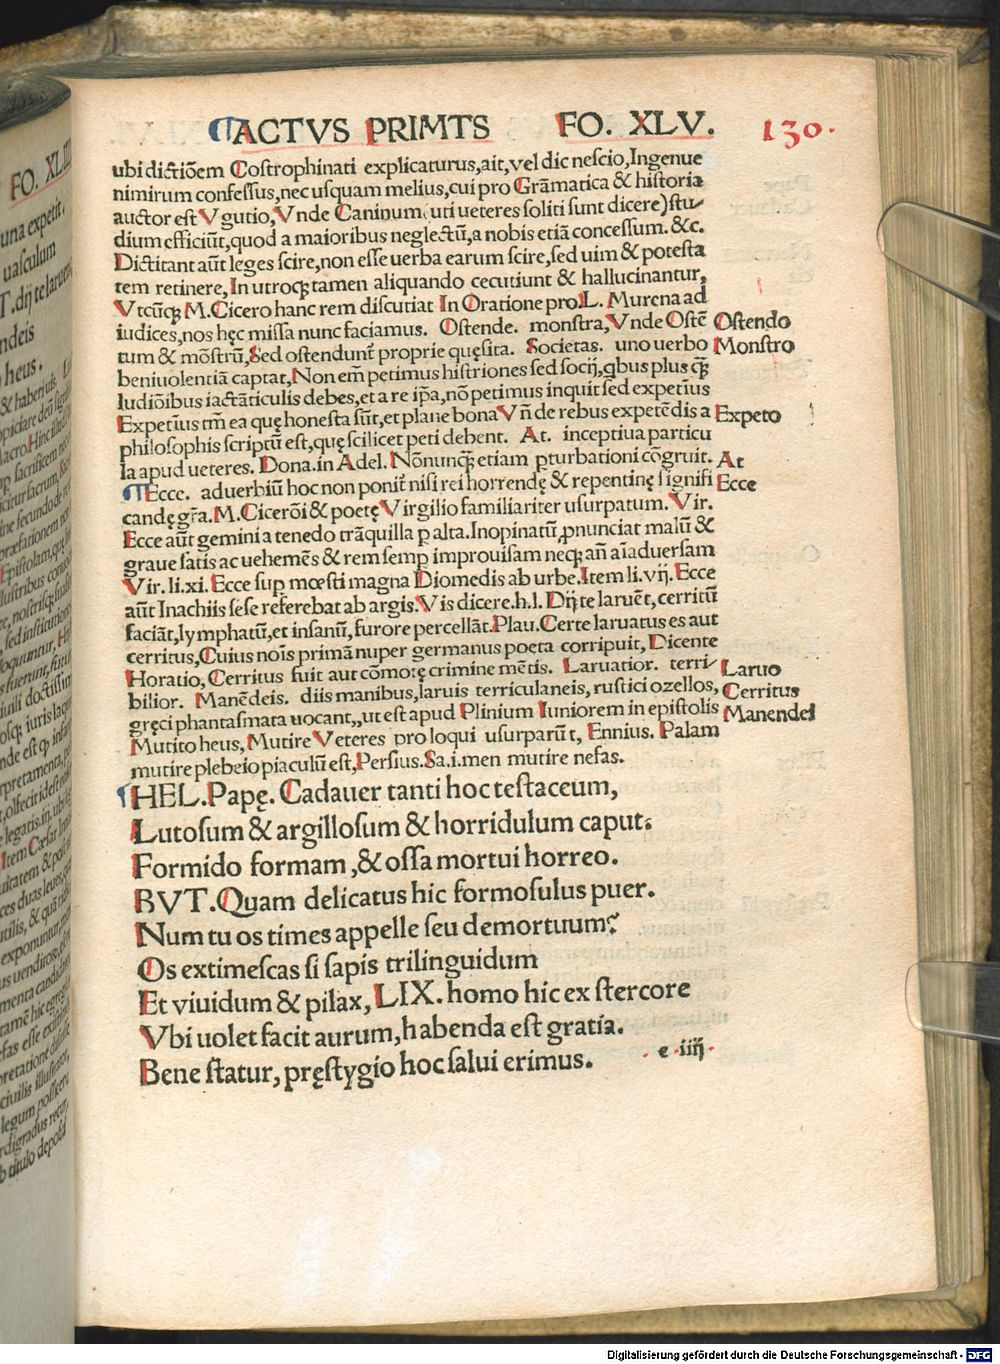 ¶ACTVS PRIMTS FO. XLV. 130.
ubi dictiõem Costrophinati explicaturus, ait, vel dic nescio, Ingenue
nimirum confessus, nec usquam melius, cui pro Grãmatica & historia
auctor est Vgutio, Vnde Caninum (uti ueteres soliti sunt dicere) stu-
dium efficiũt, quod a maioribus neglectũ, a nobis etiã concessum. &c.
Dictitant aũt leges scire, non esse uerba earum scire, sed uim & potesta
tem retinere, In utroq; tamen aliquando cecutiunt & hallucinantur,
Vtcũq; M. Cicero hanc rem discutiat In Oratione pro L. Murena ad
iudices, nos hęc missa nunc faciamus. Ostende. monstra, Vnde Ostẽ Ostendo
tum & mõstrũ, Sed ostendunt proprie quęsita. Societas. uno uerbo Monstro
beniuolentiã captat, Non em̃ petimus histriones sed socij, qbus plus q̃
ludiõibus iactãticulis debes, et a re ip̃a, nõ petimus inquit sed expetĩus
Expetĩus tm̃ ea quę honesta sũt, et plane bona Vñ de rebus expetẽdis a Expeto
philosophis scriptũ est, quę scilicet peti debent. At. inceptiua particu
la apud ueteres. Dona. in Adel. Nõnunq̃ etiam pturbationi cõgruit. At
¶Ecce. aduerbiũ hoc non ponit nisi rei horrendę & repentinę signifi Ecce
candę gr̃a. M. Cicerõi & poetę Virgilio familiariter usurpatum. Vir.
Ecce aũt gemini a tenedo trãquilla p alta. Inopinatũ, pnunciat malũ &
graue satis ac uehemẽs & rem semp improuisam neq; añ aĩaduersam
Vir. li. xi. Ecce sup mœsti magna Diomedis ab urbe. Item li. vij. Ecce
aũt Inachiis sese referebat ab argis. Vis dicere. h. l. Dij te laruẽt, cerritũ
faciãt, lymphatũ, et insanũ, furore percellãt. Plau. Certe laruatus es aut
cerritus, Cuius nois primã nuper germanus poeta corripuit, Dicente
Horatio, Cerritus fuit aut cõmotę crimine mẽtis. Laruatior. terri- Laruo
bilior. Manẽdeis. diis manibus, laruis terriculaneis, rustici ozellos, Cerritus
gręci phantasmata uocant,, ut est apud Plinium Iuniorem in epistolis Manendei
Mutito heus, Mutire Veteres pro loqui usurparũt, Ennius. Palam
mutire plebeio piaculũ est, Persius. Sa. i. men mutire nefas.
¶HEL. Papę. Cadauer tanti hoc testaceum,
Lutosum & argillosum & horridulum caput:
Formido formam, & ossa mortui horreo.
BVT. Quam delicatus hic formosulus puer.
Num tu os times appelle seu demortuum?
Os extimescas si sapis trilinguidum
Et viuidum & pilax, LIX. homo hic ex stercore
Vbi uolet facit aurum, habenda est gratia.
Bene statur, pręstygio hoc salui erimus. e iiij
FO. XLIII
una expetit.
uasculum
T. dij te laruent
ndeis
heus.
Digitalisierung gefördert durch die Deutsche Forschungsgemeinschaft - DFG